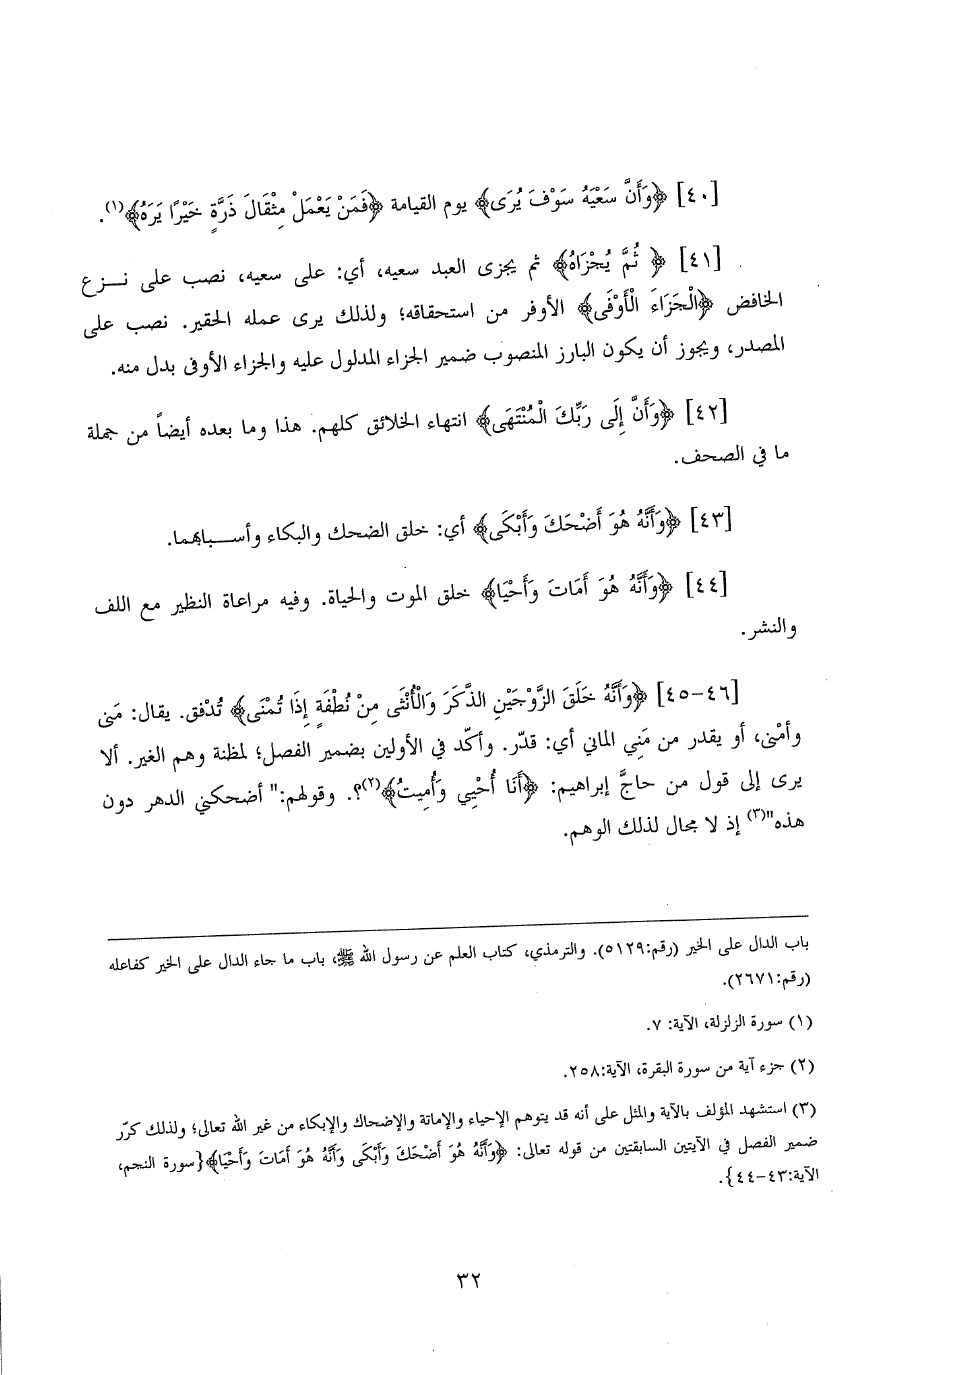 [٤٠] ﴿وَأَنَّ سَعْيَهُ سَوْفَ يُرَى﴾ يوم القيامة ﴿فَمَنْ يَعْمَلْ مِثْقَالَ ذَرَّةٍ خَيْرًا يَرَهُ﴾(١).
[٤١] ﴿ ثُمَّ يُجْزَاهُ﴾ ثم يجزى العبد سعيه، أي: على سعيه، نصب على نــزع
الخافض ﴿الْجَزَاءَ الْأَوْفَى﴾ الأوفر من استحقاقه؛ ولذلك يرى عمله الحقير. نصب على
المصدر، ويجوز أن يكون البارز المنصوب ضمير الجزاء المدلول عليه والجزاء الأوفى بدل منه.
[٤٢] ﴿وَأَنَّ إِلَى رَبِّكَ الْمُنْتَهَى﴾ انتهاء الخلائق كلهم. هذا وما بعده أيضاً من جملة
ما في الصحف.
[٤٣] ﴿وَأَنَّهُ هُوَ أَضْحَكَ وَأَبْكَى﴾ أي: خلق الضحك والبكاء وأســبابهما.
[٤٤] ﴿وَأَنَّهُ هُوَ أَمَاتَ وَأَحْيَا﴾ خلق الموت والحياة. وفيه مراعاة النظير مع اللف
والنشر.
[٤٥-٤٦] ﴿وَأَنَّهُ خَلَقَ الزَّوْجَيْنِ الذَّكَرَ وَالْأُنْثَى مِنْ نُطْفَةٍ إِذَا تُمْنَى﴾ تُدْفق. يقال: مَنى
وأمْنى، أو يقدر من مَنِي الماني أي: قدّر. وأكّد في الأولين بضمير الفصل؛ لمظنة وهم الغير. ألا
يرى إلى قول من حاجَّ إبراهيم: ﴿أَنَا أُحْيِي وَأُمِيتُ﴾(٢)؟. وقولهم:" أضحكني الدهر دون
هذه"(٣) إذ لا مجال لذلك الوهم.
باب الدال على الخير (رقم:٥١٢٩). والترمذي، كتاب العلم عن رسول الله ﷺ، باب ما جاء الدال على الخير كفاعله
(رقم:٢٦٧١).
(١) سورة الزلزلة، الآية: ٧.
(٢) جزء آية من سورة البقرة، الآية:٢٥٨.
(٣) استشهد المؤلف بالآية والمثل على أنه قد يتوهم الإحياء والإماتة والإضحاك والإبكاء من غير الله تعالى؛ ولذلك كرّر
ضمير الفصل في الآيتين السابقتين من قوله تعالى: ﴿وَأَنَّهُ هُوَ أَضْحَكَ وَأَبْكَى وَأَنَّهُ هُوَ أَمَاتَ وَأَحْيَا﴾{سورة النجم،
الآية:٤٣-٤٤}.
٣٢